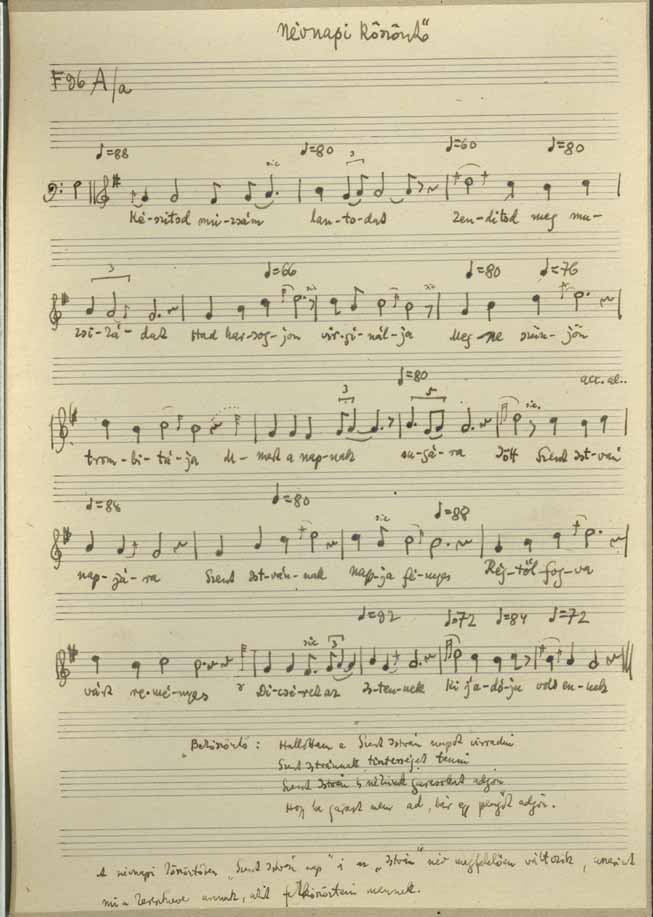 Névnapi köszöntő
F 96 A/a
♩=88 ♩=80 ♩=60 ♩=80
sic 3
Ké-szitsd mú-zsám lan-to-dat Zen-ditsd meg mu-
3 ♩=66 sic sic ♩=80 ♩=76
zsi-ká-dat Had har-sog-jon vir-gi-nál-ja Meg ne szün-jön
♩=80 acc. al..
3 5 sic.
trom-bi-tá-ja Mert a nap-nak su-gá-ra Jött Szent Ist-ván
♩=84 ♩=80 sic ♩=88
nap-já-ra Szent Ist-ván-nak nap-ja fé-nyes Rég-től fog-va
♩=92 ♩=72 ♩=84 ♩=72
sic 3
várt re-mé-nyes Di-csé-ret az Is-ten-nek Ki ja-dó-ja volt en-nek
Beköszöntő: Hallottam a Szent István napot virradni
Szent Istvánnak tisztességet tenni
Szent István s nékünk garasokat adjon
Hogy ha garast nem ad, bár egy pengőt adjon.
A névnapi köszöntőben "Szent István nap" és az "István" név megfelelően változik, aszerint
mi a keresztneve annak, akit felköszönteni mennek.